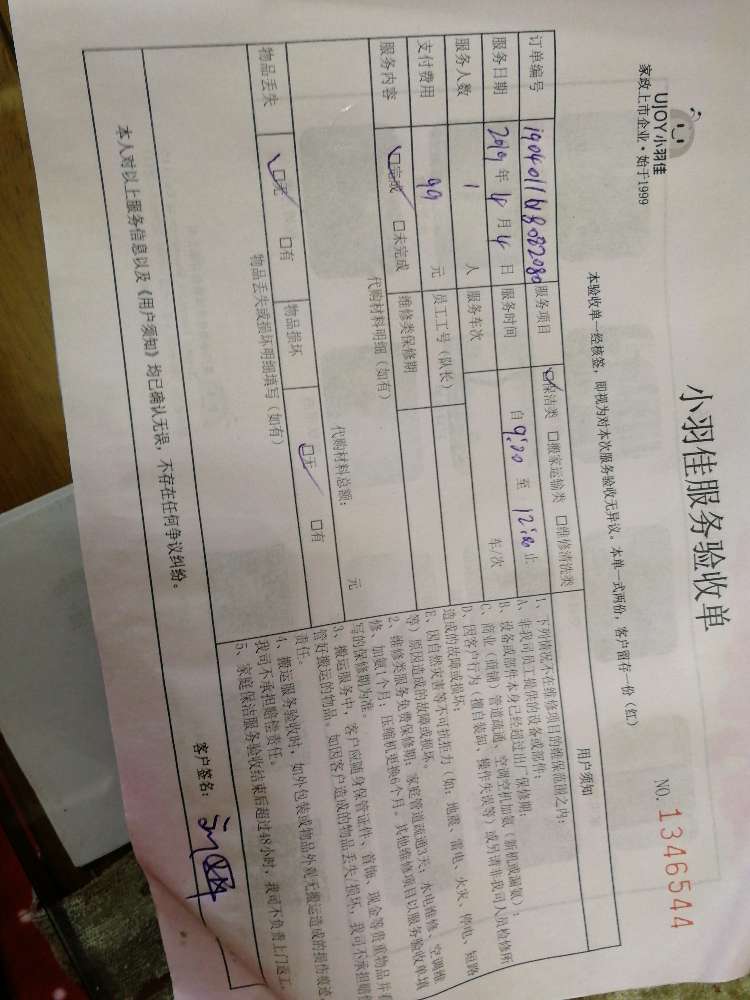 UJOY小羽佳
家政上市企业·始于1999
小羽佳服务验收单
NO. 1346544
本验收单一经核签，即视为对本次服务验收无异议。本单一式两份，客户留存一份（红）
订单编号 190401161808208 服务项目 保洁类 搬家运输类 维修清洗类
服务日期 2019 年 4 月 4 日 服务时间 自 9:00 至 12:00 止
服务人数 1 人 服务车次 车/次
支付费用 99 元 员工工号（队长）
服务内容 完成 未完成 维修类保修期
代购材料明细（如有）
代购材料总额： 元
物品丢失 无 有 物品损坏 无 有
物品丢失或损坏明细填写（如有）
本人对以上服务信息以及《用户须知》均已确认无误，不存在任何争议纠纷。
用户须知
1、下列情况不在维修项目的维保范围之内：
A、非我司员工提供的设备或部件；
B、设备或部件本身已经超过出厂保修期；
C、商业（商铺）管道疏通、空调空机加氨（新机或漏氨）；
D、因客户行为（擅自装卸、操作失误等）或另请非我司人员检修所
造成的故障或损坏；
E、因自然灾害等不可抗拒力（如：地震、雷电、火灾、停电、短路
等）原因造成的故障或损坏。
2、维修类服务免费保修期：家庭管道疏通3天；水电维修、空调维
修、加氨1个月；压缩机更换6个月。其他维修项目以服务验收单填
写的保修期为准。
3、搬运服务中，客户应随身保管证件、首饰、现金等贵重物品并看
管好搬运的物品。如因客户造成的物品丢失/损坏，我司不承担赔
责任。
4、搬运服务验收时，如外包装或物品外观无搬运造成的损伤痕迹
我司不承担赔偿责任。
5、家庭保洁服务验收结束后超过48小时，我司不负责上门返工
客户签名：